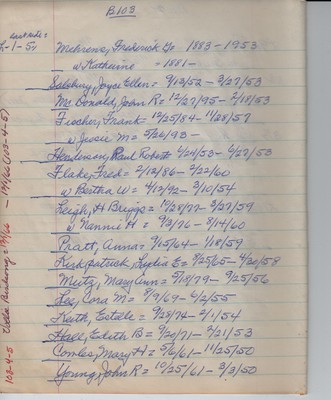 B103
Mehrens, Frederick G 1883-1953
w Katherine = 1881-
Salsbury, Joyce Ellen = 9/13/52 - 3/27/53
Mc Donald, Joan R = 12/27/95 - 2/18/53
Fischer, Frank = 12/25/84 - 11/28/57
w Jessie M = 5/26/93 -
Henderson, Paul Robert 6/21/53 - 6/27/53
Flake, Fred = 2/12/86 - 2/22/60
w Bertha W = 4/12/92 - 3/10/54
Leigh, H Briggs = 10/28/77 - 3/27/59
w Nannie H = 9/3/76 - 8/14/60
Pratt, Anna = 9/15/64 - 1/18/59
Kirkpatrick, Lydia E = 8/25/65 - 4/20/58
Meitz, Mary Ann = 5/13/79 - 9/25/56
Les, Cora M = 8/9/69 - 6/2/55
Keith, Estele = 9/23/74 - 2/1/54
Hall, Edith B = 9/20/71 - 2/21/53
Combs, Mary H = 5/6/61 - 11/25/50
Young, John R = 10/25/61 - 3/3/50